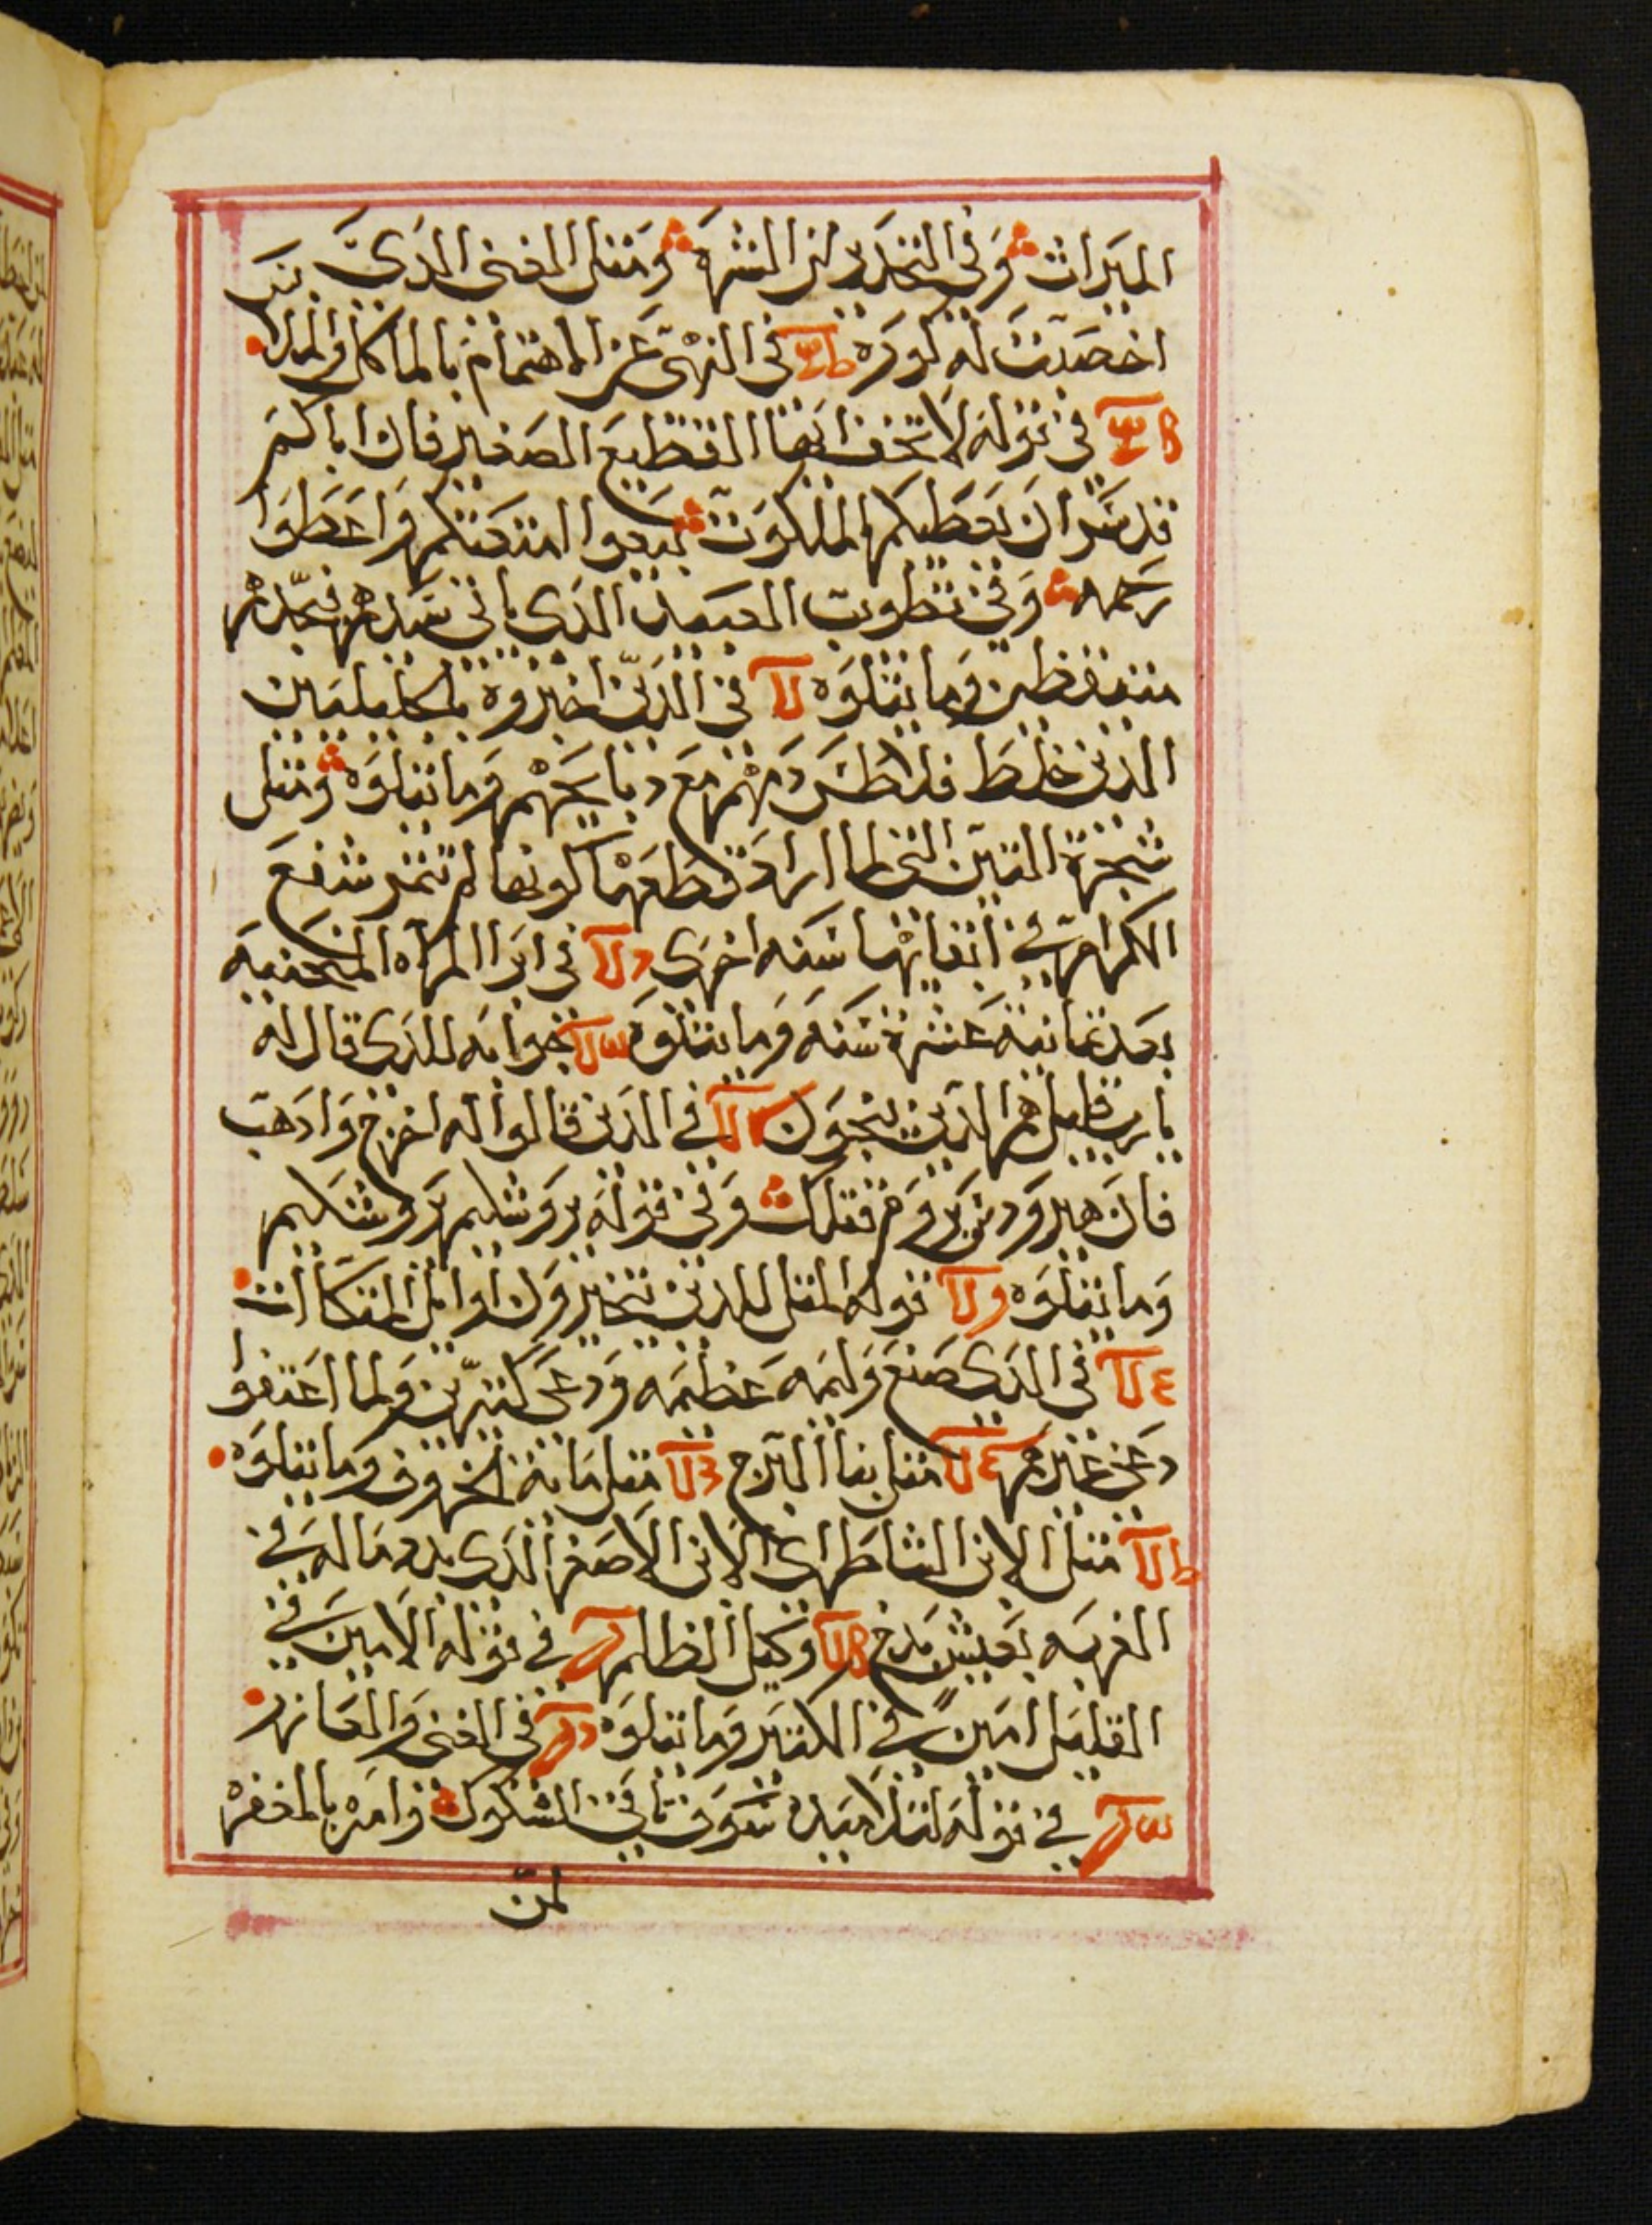 الميراث وفي التحذير من الشره ومثل الغني الذي
اخصبت له كوره في النهي عن الاهتمام بالماكل والملبا
في قوله لا تخف ايها القطيع الصغير فان اباكم
قد سر ان يعطيكم الملكوت بيعوا امتعتكم واعطوا
رحمه وفي تطويب العبيد الذي ياتي سيدهم فيجدهم
متيقظين وما يتلوه في الذين اخبروه بالجليليين
الذين خلط فلاطس دمهم مع دبايحهم وما يتلوه ومثل
شجرة التين التي لما اراد قطعها كونها لم تثمر شفع
الكرام في ابقايها سنه اخرى في ابرا المراه المنحنيه
بعد ثمانية عشرة سنه وما يتلوه جوابه للذي قال له
يا رب قليل هم الذين ينجون في الذين قالوا له اخرج واذهب
فان هيرودس يروم قتلك وفي قوله يروشليم يروشليم
وما يتلوه قوله المثل للذين يتخيرون اوايل المتكاات
في الذي صنع وليمه عظيمه ودعى كثيرين ولما اعتفوا
دعى غيرهم مثل بنا البرج مثل ماية الخروف وما يتلوه
مثل الابن الشاطر اي الابن الاصغر الذي بدد ماله في
الغربه بعيش بدخ وكيل الظلم في قوله الامين في
القليل امين في الكثير وما يتلوه في الغني والعازر
في قوله لتلاميده سوف تاتي الشكوك وامره بالمغفره
لمن